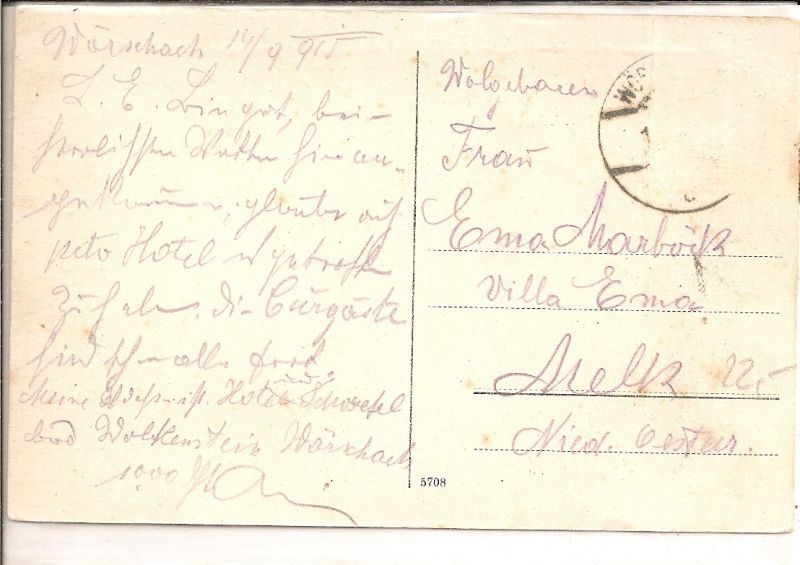 Wörschach 14/9 915
L. E. Bin gut, bei
herrlichsten Wetter hier an-
gekommen, glaube auf
peto Hotel
zu haben. die Curgäste
sind schon alle fort.
Meine Adresse ist. Hotel Schwefel
bad Wolkenstein Wörschach
1000
Wolgeboren
Frau
Ema Marböck
Villa Ema
Melk 22,-
Nied. Oestur.
WÖR
5708